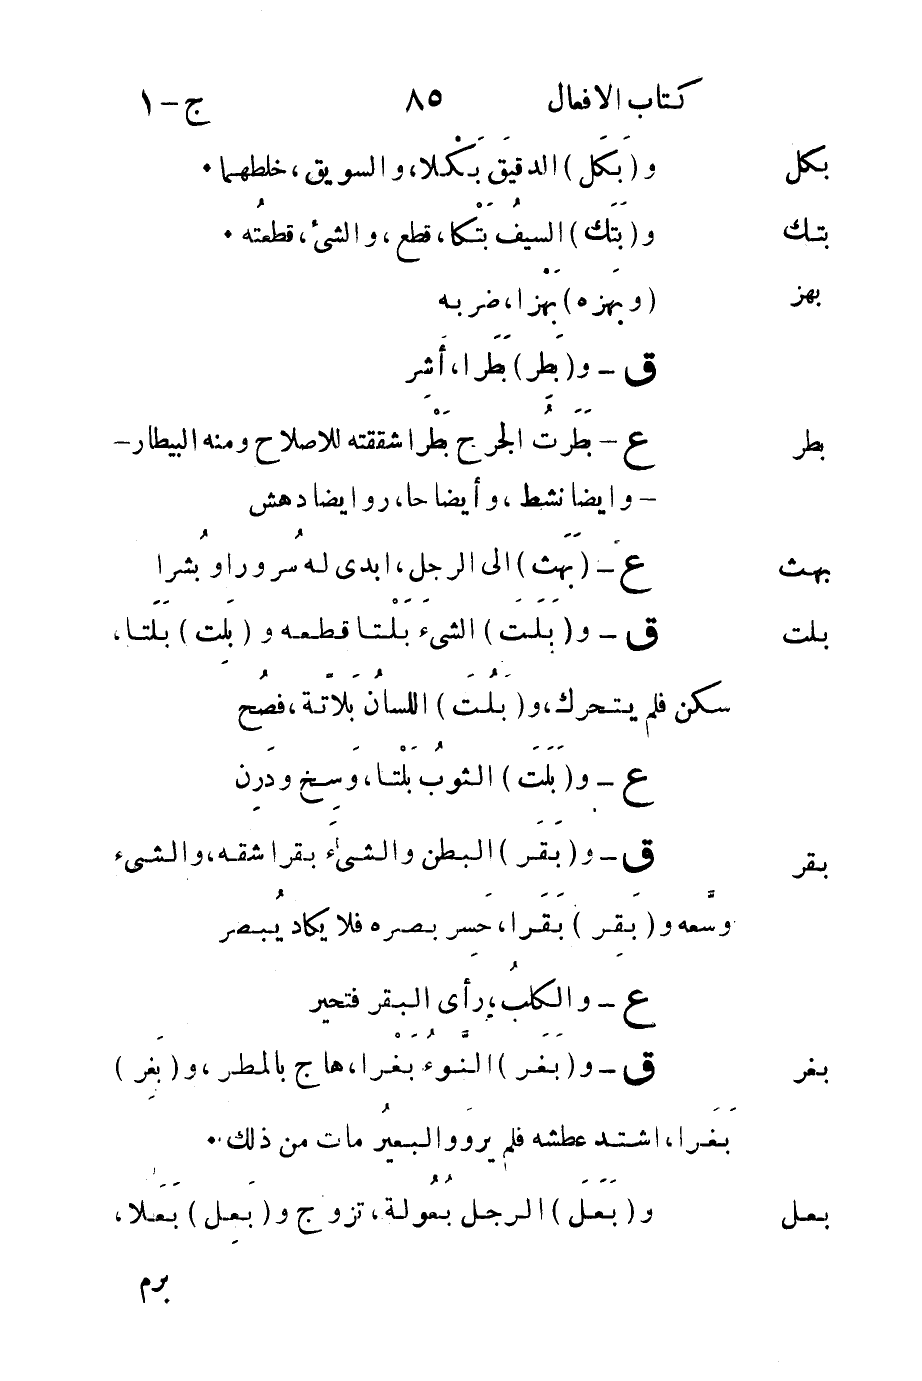 كتاب الافعال ٨٥ ج-١
بكل و (بَكَل) الدقيقَ بَكْلا، والسويق، خلطهما •
بتك و (بَتَك) السيفُ بَتْكا، قطع، والشئُ، قطعتُه •
بهز (وبَهزه) بَهْزا، ضربه
ق – و(بَطِر) بَطَرا، أَشِر
بطر ع – بَطَرتُ الجرحَ بَطْرا شققته للاصلاح ومنه البيطار–
– وايضا نشط، وأيضا حا، روايضا دهش
بهث ع – (بَهَث) الى الرجل، ابدى له سُرورا و بُشرا
بلت ق – و(بَلَتَ) الشىءَ بَلْتا قطعه و (بَلِت) بَلَتا،
سكن فلم يتحرك، و(بَلُتَ) اللسانُ بَلاَتَّة، فصُح
ع – و(بَلَتَ) الثوبُ بَلْتا، وَسِخ ودَرِن
بقر ق – و(بَقَر) البطن والشىء بقرا شقه، والشىء
وسَّعه و(بَقِر) بَقَرا، حَسِر بصره فلا يكاد يُبصر
ع – والكلبُ، رأى البقر فتحير
بغر ق – و(بَغَر) النَّوءُ بَغْرا، هاج بالمطر، و(بَغِر)
بَغَرا، اشتد عطشه فلم يرو والبعيرُ مات من ذلك •
بعل و (بَعَلَ) الرجل بُعُولة، تزوج و(بَعِل) بَعَلا،
برم